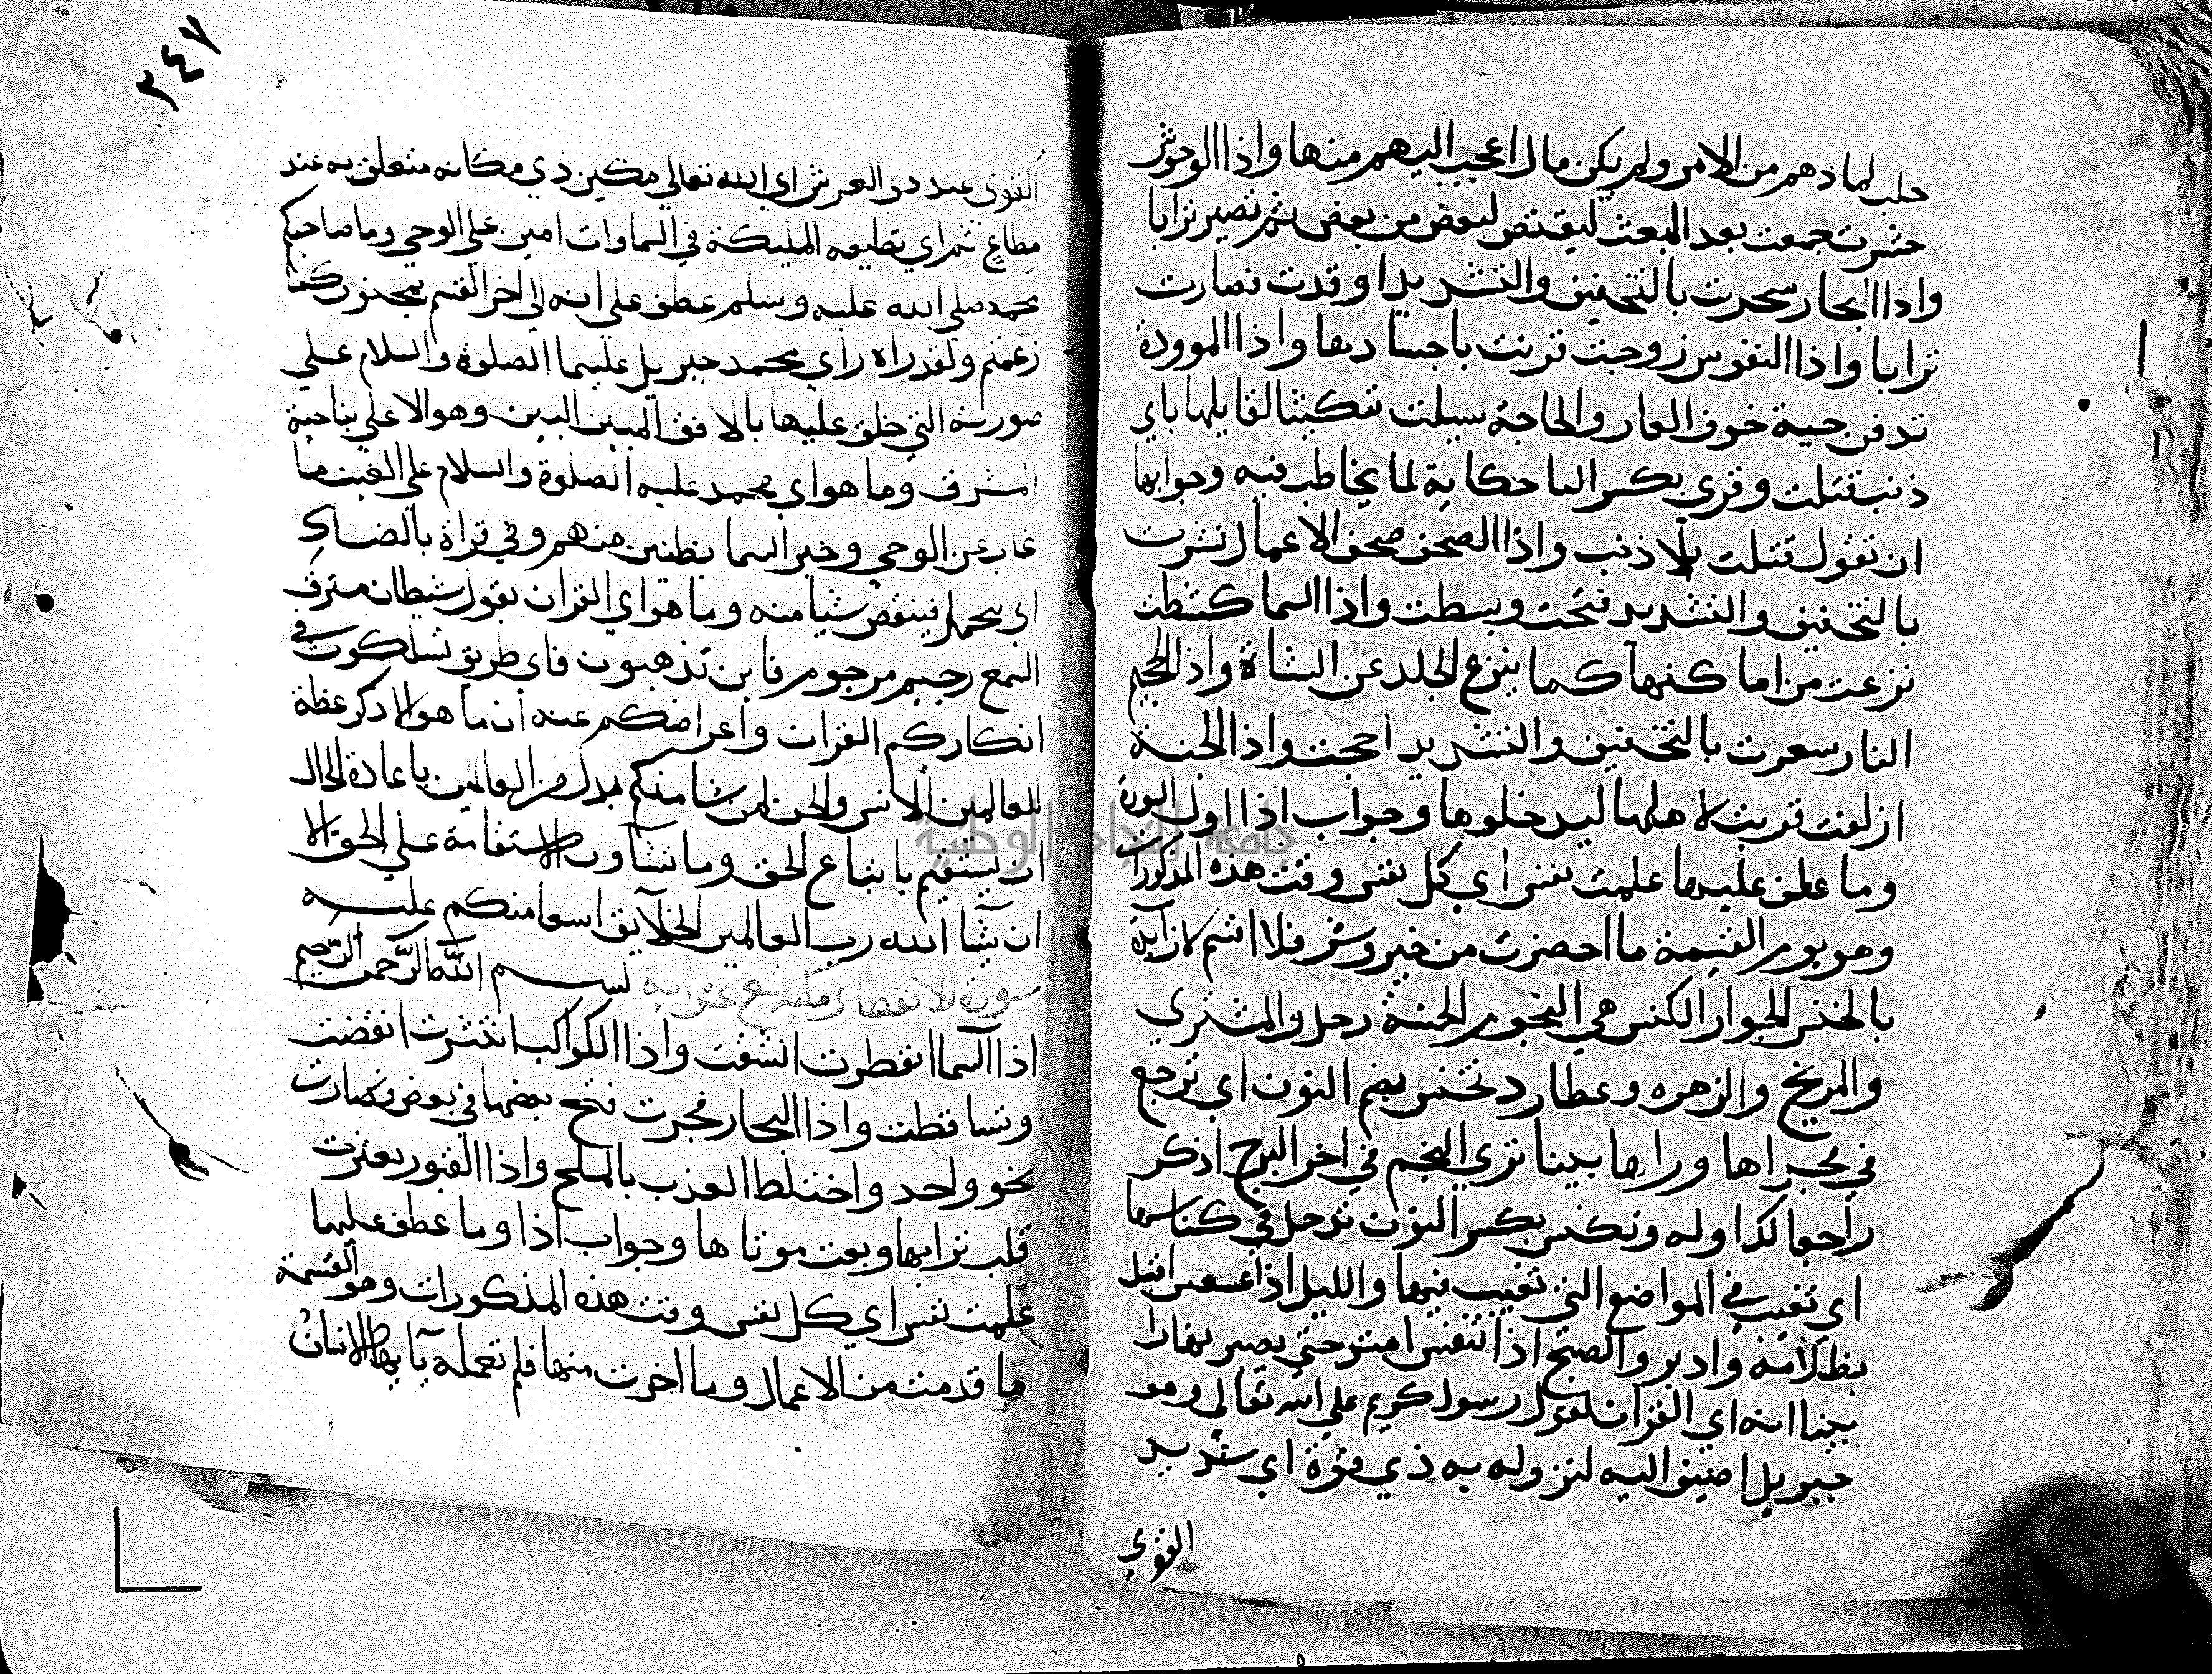 حلب لما دهم من الامر ولم يكن مال اعجب اليهم منها واذا الوحوش
حشرت جمعت بعد البعث ليقتص لبعض من بعض ثم تصير ترابا
واذا البحار سجرت بالتخفيف والتشديد اوقدت فصارت
ترابا واذا النفوس زوجت قرنت باجسادها واذا الموودة
تدفن حية خوف العار والحاجة سيلت تبكيتا لقايلها باي
ذنب قتلت وقري بكسر التا حكاية لما يخاطب فيه وجوابها
ان تقول قتلت بلا ذنب واذا الصحف صحف الاعمال نشرت
بالتخفيف والتشديد فتحت وبسطت واذا السما كشطت
نزعت من اماكنها كما ينزع الجلد عن الشاة واذا الجحيم
النار سعرت بالتخفيف والتشديد اججت واذا الجنة
ازلفت قربت لاهلها ليدخلوها وجواب اذا اول السورة
وما عطف عليها علمت نفس اي كل نفس وقت هذه المذكورات
وهو يوم القيمة ما احضرت من خير وشر فلا اقسم لازايدة
بالخنس الجوار الكنس هي النجوم الخمسة زحل والمشتري
والمريخ والزهره وعطارد تخنس بضم النون اي ترجع
في مجراها وراها بينا تري النجم في اخر البرج اذ كر
راجعا لذا وله وتكنس بكسر النون تدخل في كناسها
اي تغيب في المواضع التي تغيب فيها والليل اذا عسعس اقبل
بظلامه وادبر والصبح اذا تنفس امتد حتي يصير نهارا
بينا انه اي القران لقول رسول كريم علي الله تعالي وهو
جبريل اضيف اليه لنزوله به ذي قوة اي شديد
القوي
٣٤٧
القوي عند ذي العرش اي الله تعالي مكين ذي مكانه متعلق به عند
مطاع ثم اي تطيعه المليكة في السماوات امين علي الوحي وما صاحبكم
محمد صلي الله عليه وسلم عطف علي انه الي اخر القسم بمجنون كما
زعمتم ولقد راه راي محمد جبريل عليهما الصلوة والسلام علي
صورته التي خلق عليها بالافق المبين البين وهو الاعلي بناحية
المشرق وما هو اي محمد عليه الصلوة والسلام علي الغيب ما
غاب عن الوحي وخبر السما بظنين متهم وفي قراة بالضاد
اي ببخيل فينقص شيا منه وما هو اي القران بقول شيطان مسترق
السمع رجيم مرجوم فاين تذهبون فاي طريق تسلكون في
انكاركم القران واعراضكم عنه ان ما هو الا ذكر عظة
للعالمين الانس والجن لمن شا منكم بدل من العالمين باعادة الجار
ان يستقيم باتباع الحق وما تشآون الاستقامة علي الحق الا
ان يشا الله رب العالمين الخلآيق استقامتكم عليه
سورة الانفطار مكية تسع عشراية بسم الله الرحمن الرحيم
اذا السما انفطرت انشقت واذا الكواكب انتثرت انقضت
وتساقطت واذا البحار فجرت فتح بعضها في بعض فصارت
بحرا واحد واختلط العذب بالملح واذا القبور بعثرت
قلب ترابها وبعث موتاها وجواب اذا وما عطف عليها
علمت نفس اي كل نفس وقت هذه المذكورات وهو القيمة
ما قدمت من الاعمال وما اخرت منها فلم تعمله يآيها الانسان
جامعة النجاح الوطنية